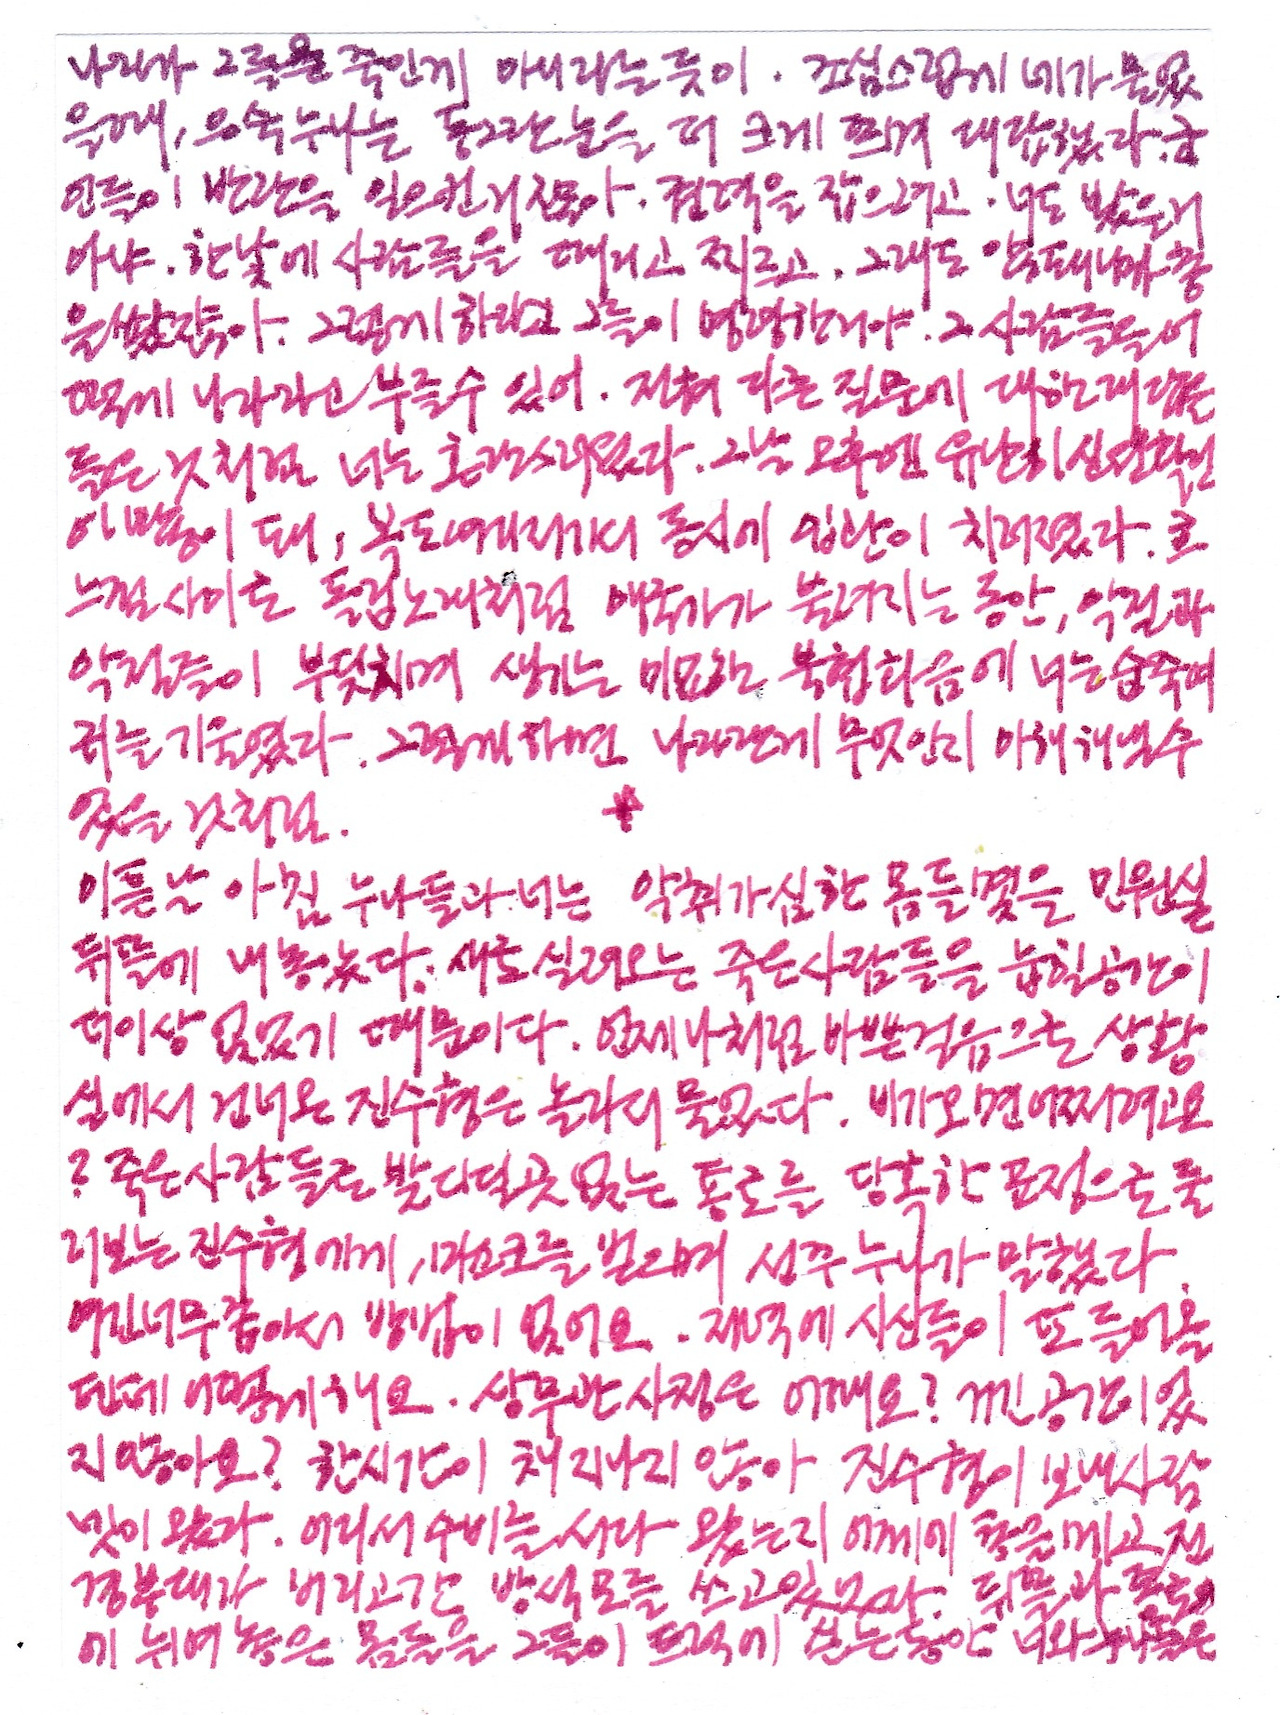 나라가 그들을 죽인게 아니라는듯이. 조심스럽게 네가 물었
을때, 은숙누나는 동그란눈을 더 크게 뜨며 대답했다. 군
인들이 반란을 일으킨거잖아. 권력을 잡으려고. 너도 봤을거
아냐. 한낮에 사람들을 때리고 찌르고. 그래도 안되니까 총
을쐈잖아. 그렇게하라고 그들이 명령한거야. 그사람들을어
떻게 나라라고 부를수 있어. 전혀 다른 질문에 대한대답을
들은 것처럼 너는 혼란스러웠다. 그날 오후엔 유난히신원확인
이 많이 돼, 복도여기저기서 동시에 입관이 치러졌다. 흐
느낌사이로 돌림노래처럼 애국가가 불려지는 동안, 악절과
악절들이 부딪치며 생기는 미묘한 불협화음에 너는숨죽여
귀를 기울였다. 그렇게하면 나라란게 무엇인지 이해해낼수
있을 것처럼. *
이튿날 아침 누나들과 너는 악취가심한 몸들 몇을 민원실
뒤뜰에 내놓았다. 새로 실려오는 죽은사람들을 눕힐공간이
더이상 없었기 때문이다. 언제나처럼 바쁜걸음으로 상황
실에서 건너온 진수형은 놀라서 물었다. 비가오면어쩌려고요
? 죽은사람들로 발디딜곳 없는 통로를 당혹한 표정으로둘
러보는 진수형에게, 마스크를 벗으며 선주누나가 말했다.
여긴너무좁아서 방법이 없어요. 저녁에 시신들이 또 들어올
텐데 어떻게해요. 상무관사정은 어때요? 거긴공간이있
지않아요? 한시간이 채 지나지 않아 진수형이 보낸사람
넷이 왔다. 어디서수비를 서다 왔는지 어깨에 총을메고 전
경부대가 버리고간 방석모를 쓰고있었다. 뒤뜰과 복도
에 뉘여놓은 몸들을 그들이 트럭에 싣는동안 너와누나들은